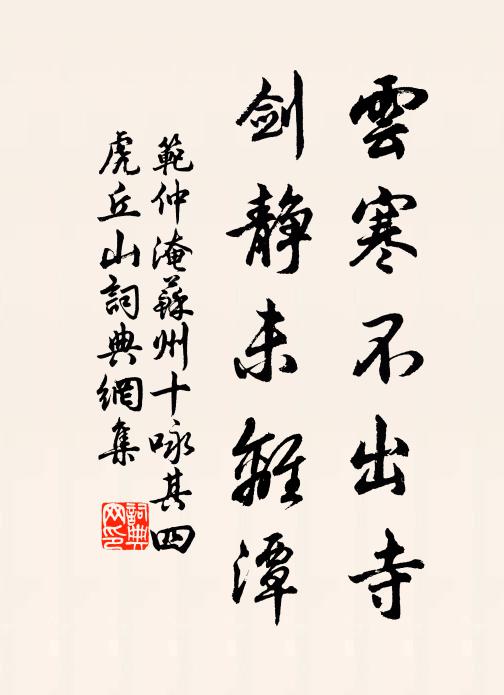 雲寒不出寺
劍靜未離潭
範仲淹蘇州十咏其四
虎丘山詞典網集
詞典网印